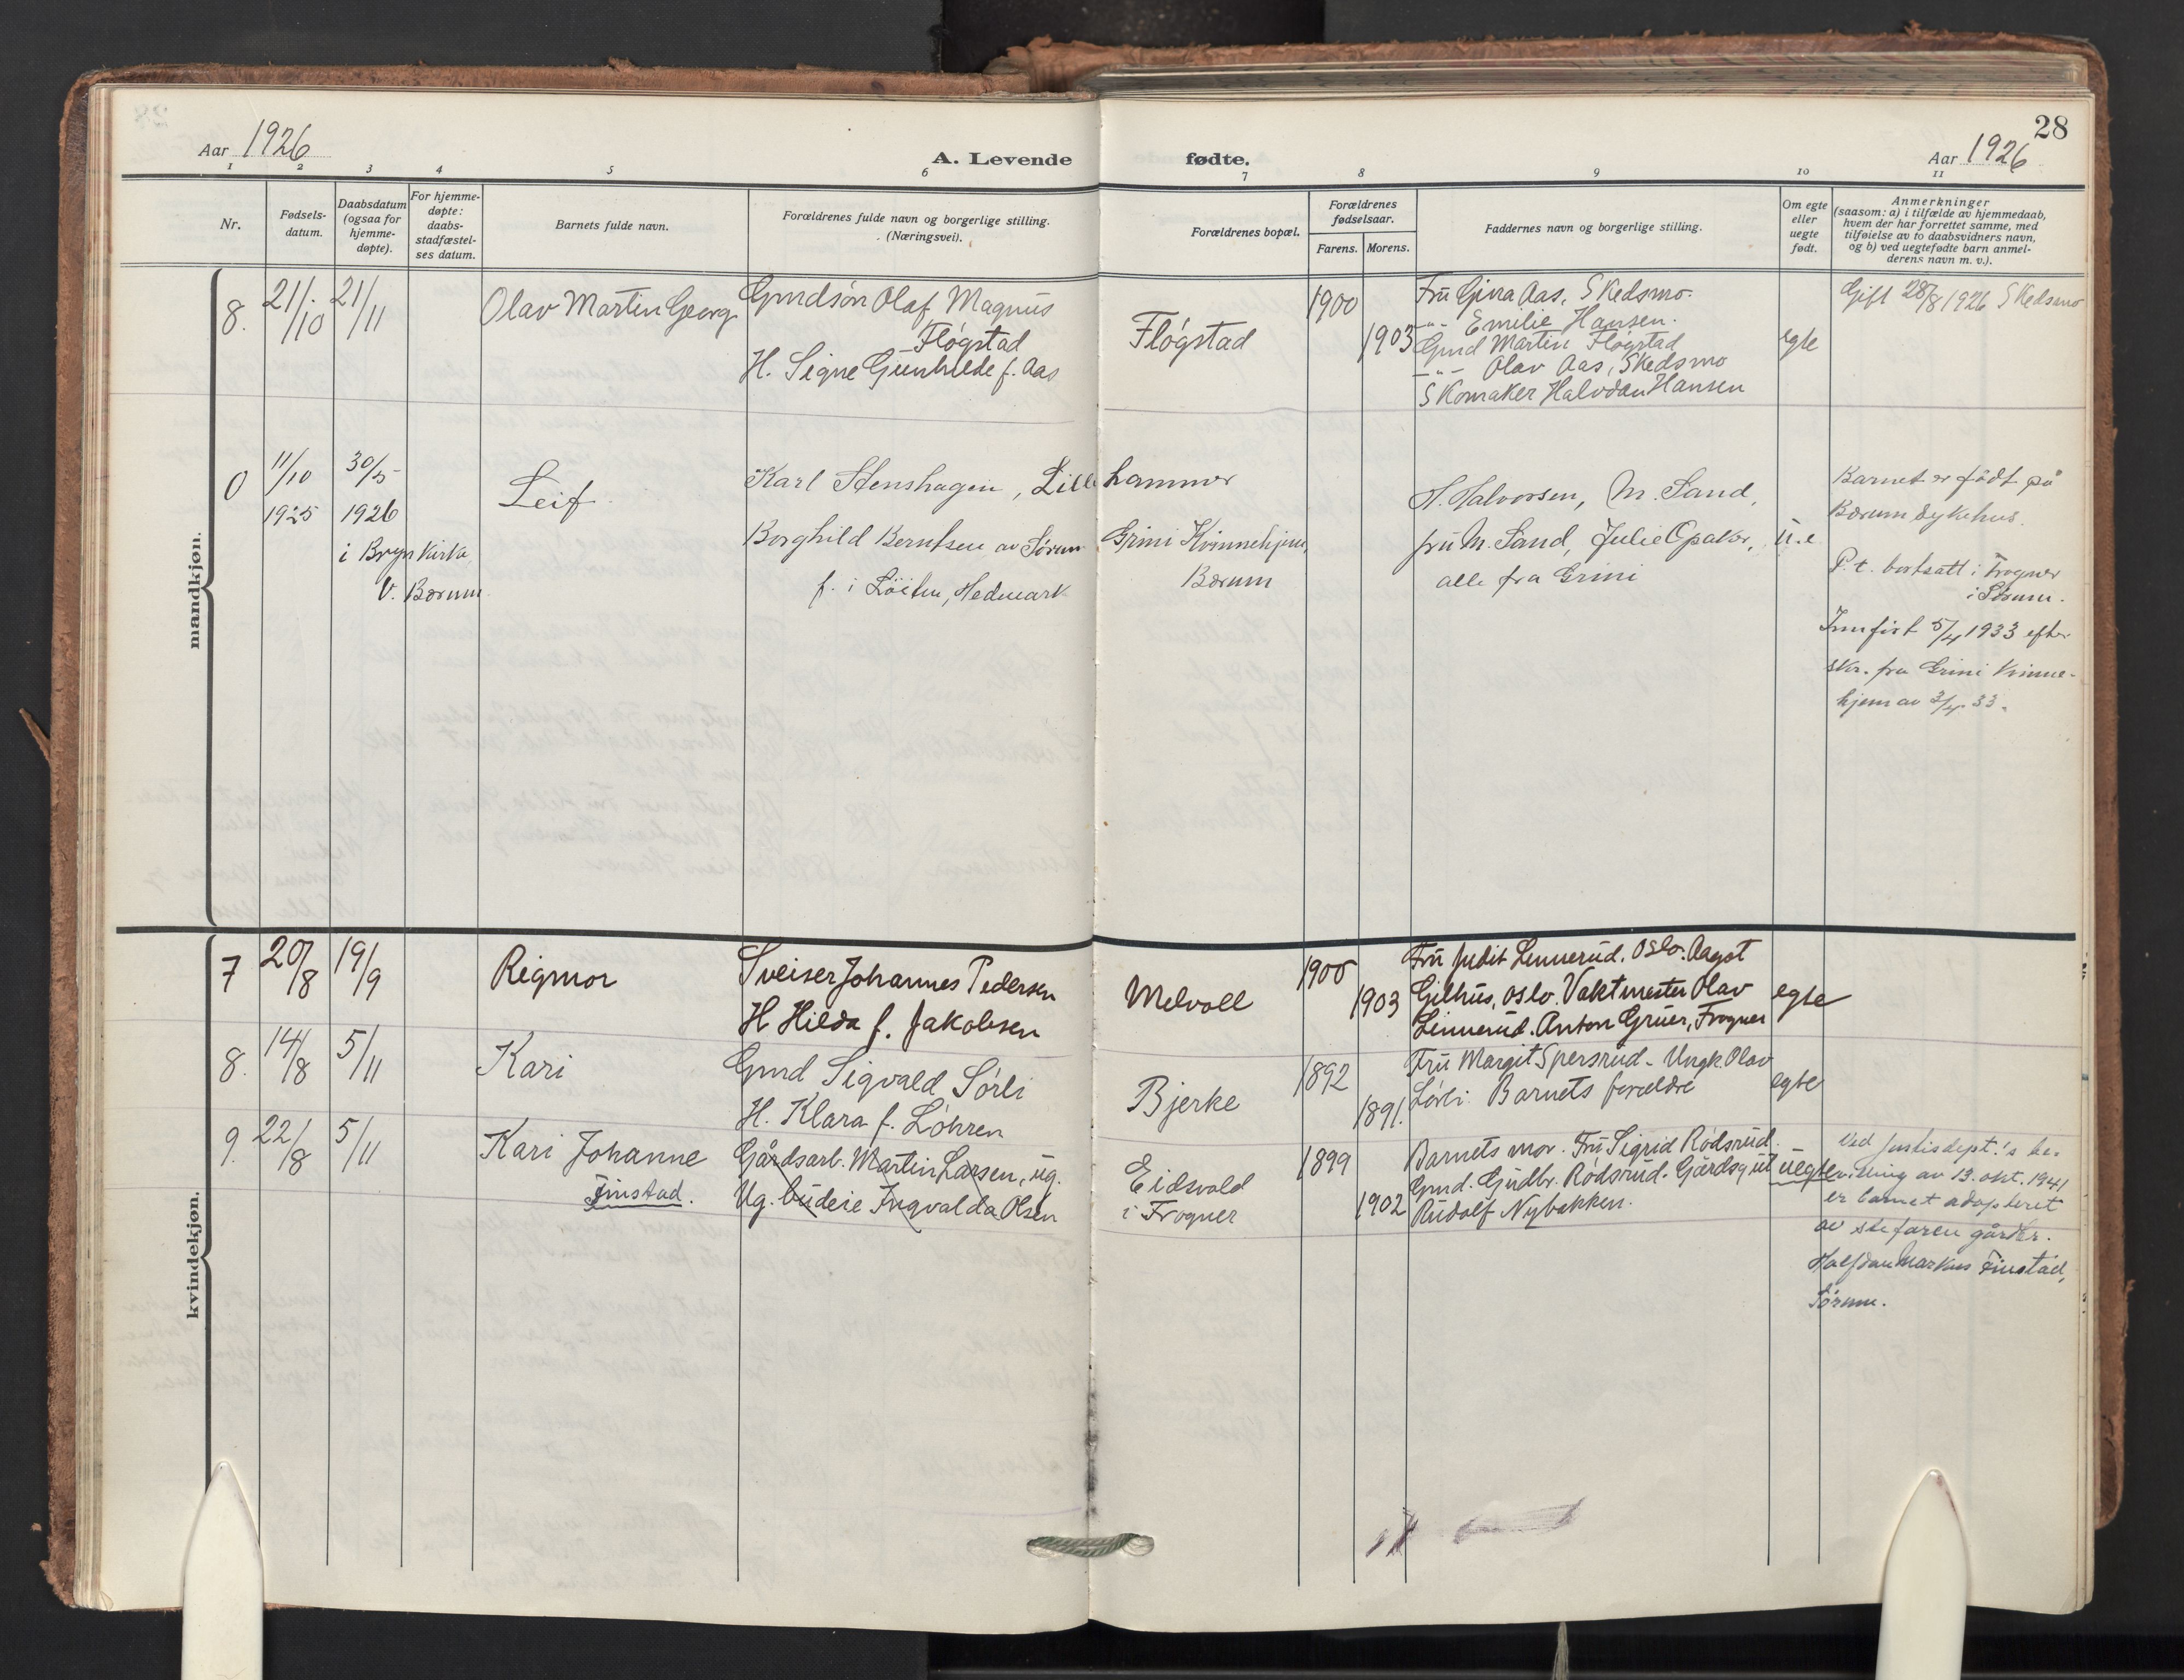 28
Aar 1926
A. Levende fødte.
Aar 1926
1 2 3 4 5 6 7 8 9 10 11
Nr.
Fødsels-
datum.
Daabsdatum
(ogsaa for
hjemme-
døpte).
For hjemme-
døpte:
daabs-
stadfæstel-
ses datum.
Barnets fulde navn.
Forældrenes fulde navn og borgerlige stilling.
(Næringsvei).
Forældrenes bopæl.
Forældrenes
fødselsaar.
Farens. Morens.
Faddernes navn og borgerlige stilling.
Om egte
eller
uegte
født.
Anmerkninger
(saasom: a) i tilfælde av hjemmedaab,
hvem der har forrettet samme, med
tilføielse av to daabsvidners navn,
og b) ved uegtefødte barn anmel-
derens navn m. v.).
mandkjøn.
8.
21/10
21/11
Olav Martin Georg
Gmdsøn Olaf Magnus
Fløgstad
H. Signe Gunhilde f. Aas
Fløgstad
1900
1903
Fru Gina Aas, Skedsmo.
-"- Emilie Hansen.
Gmd Martin Fløgstad
-"- Olav Aas, Skedsmo
Skomaker Halvdan Hansen
egte
Gift 28/8 1926 Skedsmo
0
11/10
1925
30/5
1926
i Bryn Kirke
V. Bærum
Leif
Karl Stenshagen, Lillehammer
Borghild Berntsen av Sørum
f. i Löiten, Hedmark
Grini Kvinnehjem,
Bærum
H. Halvorsen, M. Sand,
fru M. Sand, Julie Opaker,
alle fra Grini
u.e
Barnet er født på
Bærum sykehus.
P.t. bortsatt i Frogner
i Sørum.
Innført 5/4 1933 efter
skr. fra Grini Kvinne-
hjem av 3/4 33.
kvindekjøn.
7
20/8
19/9
Rigmor
Sveiser Johannes Pedersen
H Hilda f. Jakobsen
Melvoll
1900
1903
Fru Judit Linnerud, Oslo. Aagot
Gilhus, Oslo. Vaktmester Olav
Linnerud. Anton Gruer, Frogner
egte
8.
14/8
5/11
Kari
Gmd Sigvald Sørli
H. Klara f. Løhren
Bjerke
1892
1891.
Fru Margit Spersrud - Ungk. Olav
Sørli. Barnets forældre
egte
9.
22/8
5/11
Kari Johanne
Finstad.
Gårdsarb. Martin Larsen, ug.
Ug. budeie Ingvalda Olsen
Eidsvold
i Frogner
1899
1902
Barnets mor. Fru Sigrid Rødsrud.
Gmd. Gudbr. Rødsrud. Gårdsgut
Rudolf Nybakken.
uegte
Ved Justisdept.'s be-
villing av 13. okt. 1941
er barnet adoptert
av stefaren gårdbr.
Halfdan Markus Finstad,
Sørum.